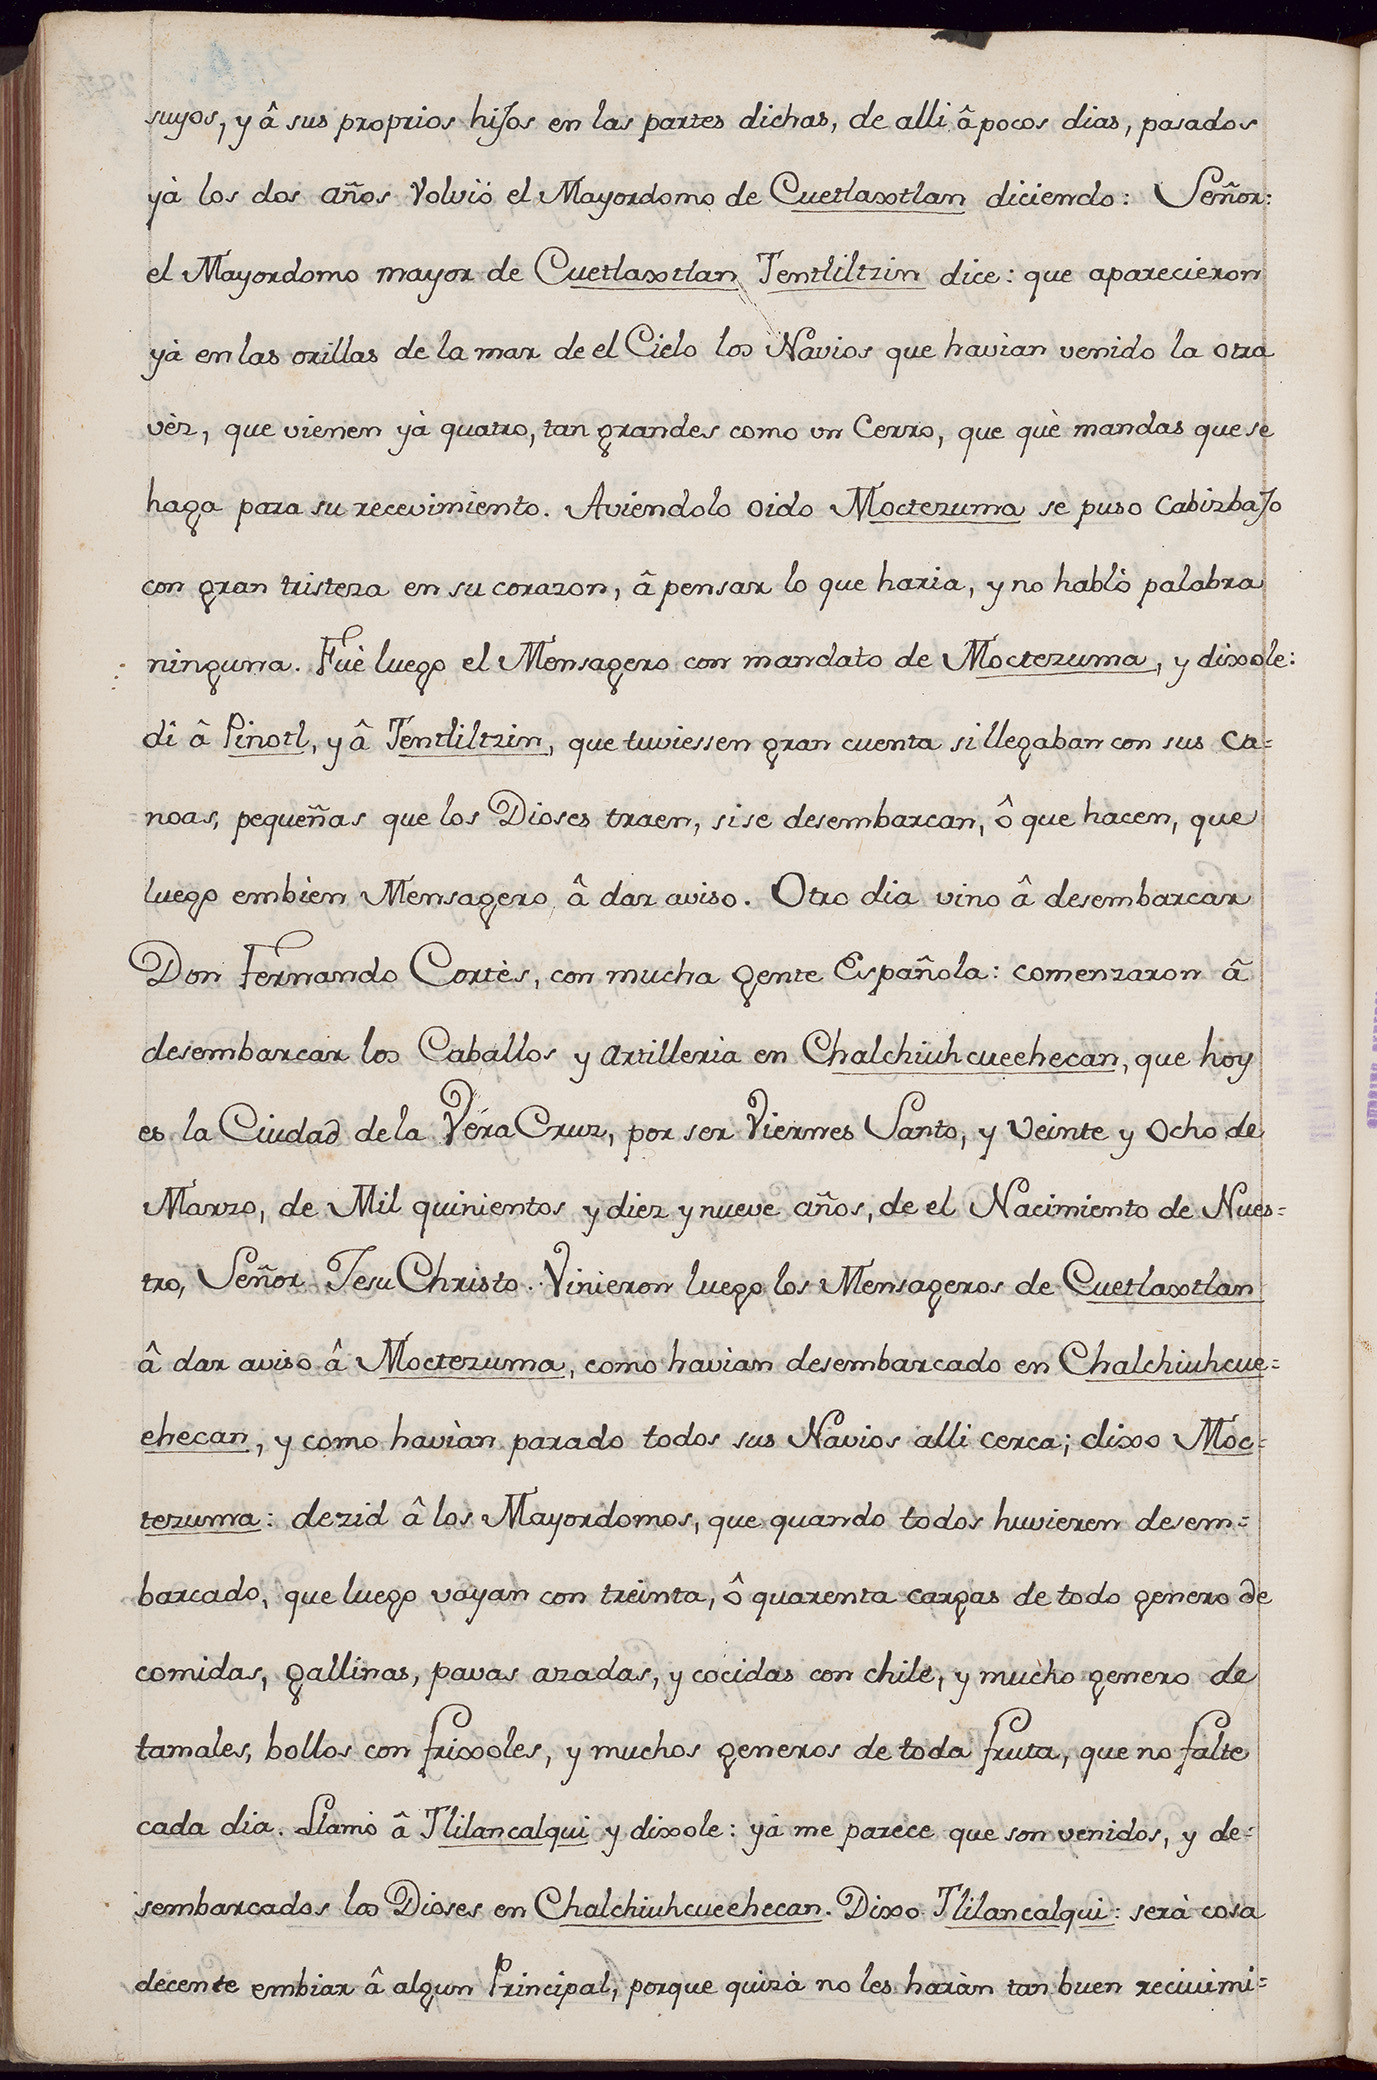 suyos, y â sus proprios hijos en las partes dichas, de alli â pocos dias, pasados
yà los dos años Volviò el Mayordomo de Cuetlaxtlan diciendo: Señor:
el Mayordomo mayor de Cuetlaxtlan Tentliltzin dice: que aparecieron
yà en las orillas de la mar de el Cielo los Navios que havian venido la otra
vèz, que vienen yà quatro, tan grandes como vn Cerro, que què mandas que se
haga para su recevimiento. Aviendolo oido Moctezuma se puso Cabizbajo
con gran tristeza en su corazon, â pensar lo que haria, y no hablò palabra
ninguna. Fuè luego el Mensagero con mandato de Moctezuma, y dixole:
di â Pinotl, y â Tentliltzin, que tuviessen gran cuenta si llegaban con sus ca=
noas, pequeñas que los Dioses traen, si se desembarcan, ô que hacen, que
luego embien Mensagero â dar aviso. Otro dia vino â desembarcar
Don Fernando Cortès, con mucha gente Española: comenzaron â
desembarcar los Caballos y Artilleria en Chalchiuhcueehecan, que hoy
es la Ciudad de la Vera Cruz, por ser Viernes Santo, y Veinte y Ocho de
Marzo, de Mil quinientos y diez y nueve años, de el Nacimiento de Nues=
tro, Señor Jesu Christo. Vinieron luego los Mensageros de Cuetlaxtlan
â dar aviso â Moctezuma, como havian desembarcado en Chalchiuhcue=
ehecan, y como havìan parado todos sus Navios alli cerca; dixo Moc=
tezuma: dezid â los Mayordomos, que quando todos huvieren desem=
barcado, que luego vayan con treinta, ô quarenta cargas de todo genero de
comidas, gallinas, pavas azadas, y cocidas con chile, y mucho genero de
tamales, bollos con frixoles, y muchos generos de toda fruta, que no falte
cada dia. Llamò â Tlilancalqui y dixole: yà me parece que son venidos, y de=
sembarcados los Dioses en Chalchiuhcueehecan. Dixo Tlilancalqui: serà cosa
decente embiar â algun Principal, porque quizà no les haràn tan buen recivimi=